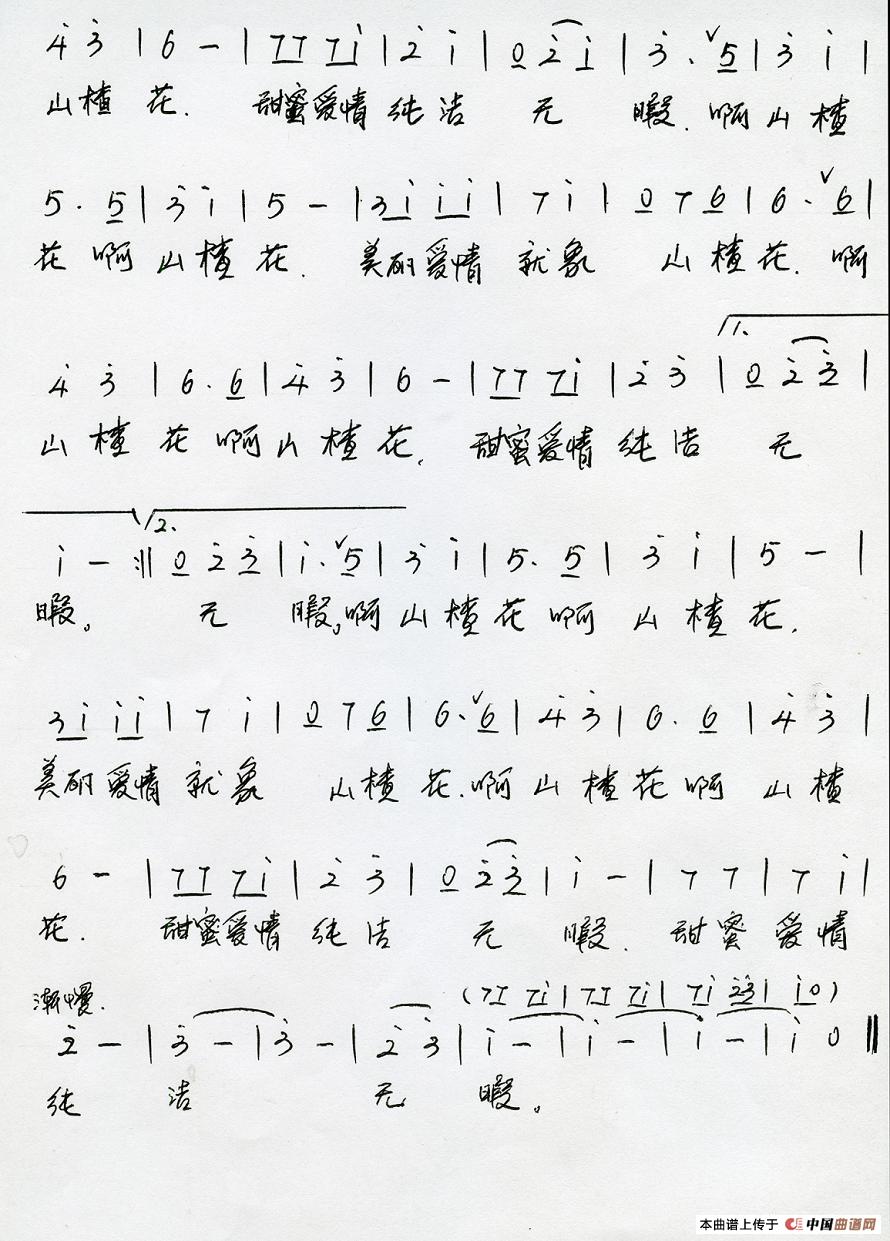 4̇ 3̇ | 6 — | 7 7 7 i̇ | 2̇ i̇ | 0 2̇ i̇ | 3̇ . ∨ 5 | 3̇ i̇ |
山楂 花. 甜蜜爱情 纯洁 无 暇. 啊 山 楂
5 . 5 | 3̇ i̇ | 5 — | 3 i̇ i̇ i̇ | 7 i̇ | 0 7 6 | 6 . ∨ 6 |
花 啊 山 楂 花. 美丽爱情 就象 山 楂 花. 啊
/1.
4̇ 3̇ | 6 . 6 | 4̇ 3̇ | 6 — | 7 7 7 i̇ | 2̇ 3̇ | 0 2̇ 3̇ |
山 楂 花 啊 山 楂 花. 甜蜜爱情 纯洁 无
/2.
i̇ — :|| 0 2̇ 3̇ | i̇ . ∨ 5 | 3̇ i̇ | 5 . 5 | 3̇ i̇ | 5 — |
暇。 无 暇。啊 山 楂 花 啊 山 楂 花.
3 i̇ i̇ i̇ | 7 i̇ | 0 7 6 | 6 . ∨ 6 | 4̇ 3̇ | 6 . 6 | 4̇ 3̇ |
美丽 爱情 就象 山楂 花. 啊 山 楂 花 啊 山 楂
6 — | 7 7 7 i̇ | 2̇ 3̇ | 0 2̇ 3̇ | i̇ — | 7 7 | 7 i̇ |
花. 甜蜜爱情 纯洁 无 暇. 甜 蜜 爱 情
渐慢. (7 7 7 i̇ | 7 7 7 i̇ | 7 i̇ 2̇ 3̇ | i̇ 0)
2̇ — | 3̇ — | 3̇ — | 2̇ 3̇ | i̇ — | i̇ — | i̇ — | i̇ 0 ||
纯 洁 无 暇。
本曲谱上传于 中国曲谱网